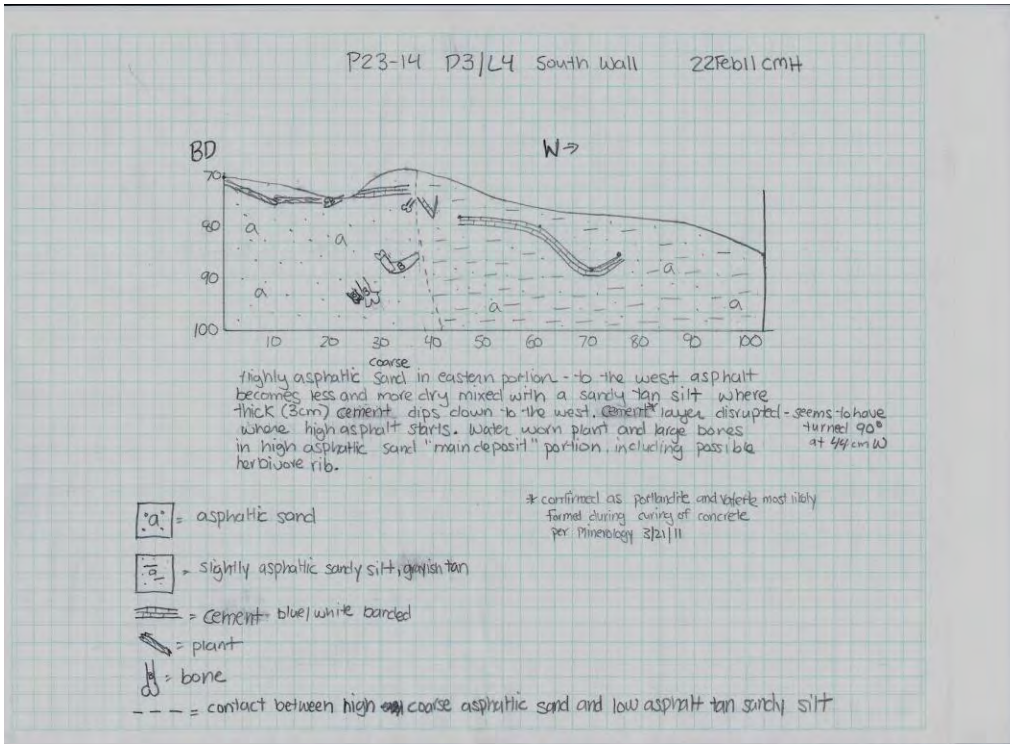 P23-14 D3/L4 South Wall 22Feb11 CMH
BD W⇒
70
80
90
100
a a a a a a
B
10 20 30 40 50 60 70 80 90 100
coarse
Highly asphaltic sand in eastern portion - to the west asphalt
becomes less and more dry mixed with a sandy tan silt where
thick (3cm) cement dips down to the west, cement* layer disrupted - seems to have
where high asphalt starts. Water worn plant and large bones turned 90°
in high asphaltic sand "main deposit" portion, including possible at 44cm W
herbivore rib.
* confirmed as portlandite and most
formed during curing of concrete
per Minerology 3/21/11
a = asphaltic sand
a = slightly asphaltic sandy silt, grayish tan
= cement blue/white banded
= plant
= bone
---- = contact between high coarse asphaltic sand and low asphalt tan sandy silt